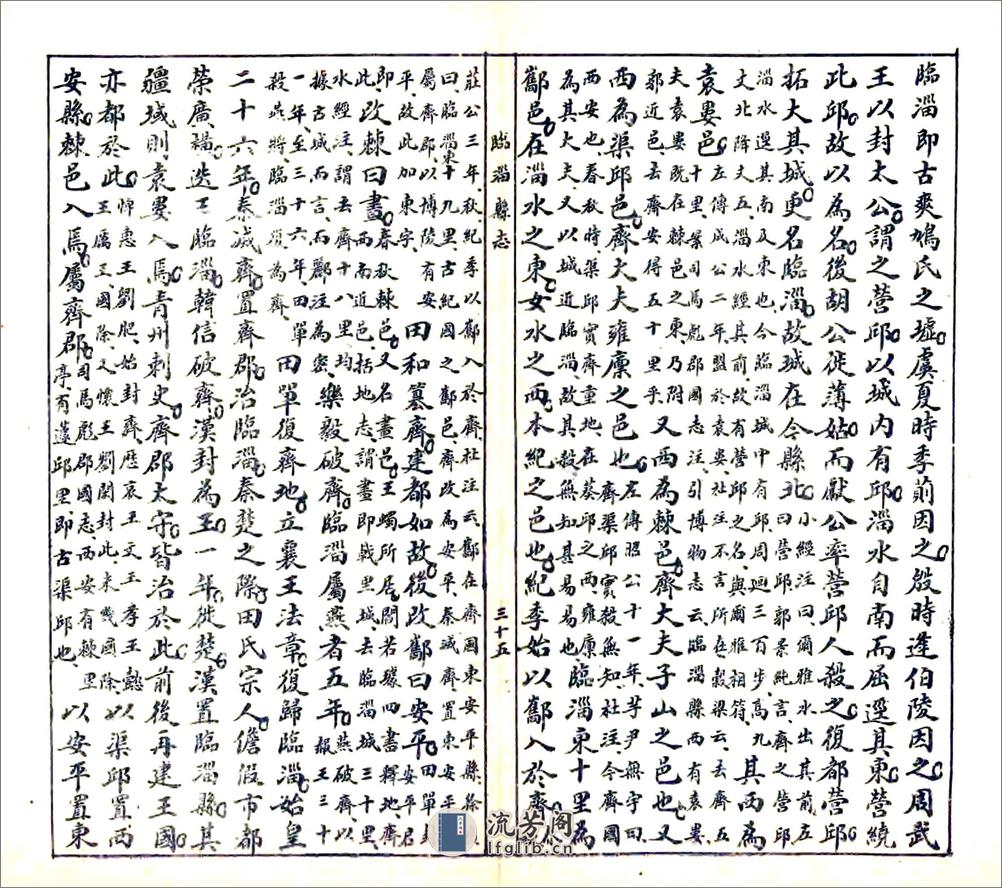 臨淄即古爽鳩氏之墟虞夏時季萴因之殷時逄伯陵因之周武
王以封太公謂之營邱以城內有邱淄水自南而屈逕其東營繞
此邱故以為名後胡公徙薄姑而獻公率營邱人殺之復都營邱
拓大其城更名臨淄故城在今縣北小經注曰爾雅水出其前左曰營邱郭景純言齊之營邱
淄水逕其南及東也今臨淄城中有邱周廻三百步高九丈北降丈五淄水經其前故有營邱之名與爾雅相符其西為
袁婁邑左傳成公二年盟於袁婁杜注不言所在穀梁云去齊五十里景司馬彪郡國志注引博物志云臨淄縣西有袁婁
夫袁婁既在棘邑之東乃附郭近邑去齊安得五十里乎又西為棘邑齊大夫子山之邑也又
西為渠邱邑齊大夫雍廩之邑也左傳昭公十一年芋尹無宇曰齊渠邱實殺無知杜注今國
西安也春秋時渠邱實齊重地在葵邱之西雍廩為其大夫又以城近臨淄故其殺無知甚易易也臨淄東十里為
酅邑在淄水之東女水之西本紀之邑也紀季始以酅入於齊
臨淄縣志
三十五
莊公三年秋紀季以酅入於齊杜注云酅在齊國東安平縣徐曰臨淄東十九里古紀國之酅邑齊改為安平秦滅齊置東安平
屬齊郡以博陵有安平故此加東字田和簒齊建都如故後改酅曰安平田單封安平君
即此改棘曰畫春秋棘邑又名畫邑王蠋所居閻若璩四書釋地齊西南近邑括地志謂畫即戟里城去臨淄城三十里
水經注謂去齊十八里均據古城而言而酈注為密樂毅破齊臨淄屬燕者五年燕破齊以報王三十
一年至三十六年田單殺燕將臨淄須為齊田單復齊地立襄王法章復歸臨淄始皇
二十六年秦滅齊置齊郡治臨淄秦楚之際田氏宗人儋假市都
榮廣橫迭王臨淄韓信破齊漢封為王一年徙楚漢置臨淄縣其
疆域則袁婁入焉青州刺史齊郡太守皆治於此前後再建王國
亦都於此悼惠王劉肥始封齊歷哀王文王孝王懿王厲王國除又懷王劉閎封此未幾國除以渠邱置西
安縣棘邑入焉屬齊郡司馬彪郡國志西安有棘里亭有蘧邱里即古渠邱也以安平置東
流芳阁
lfglib.cn